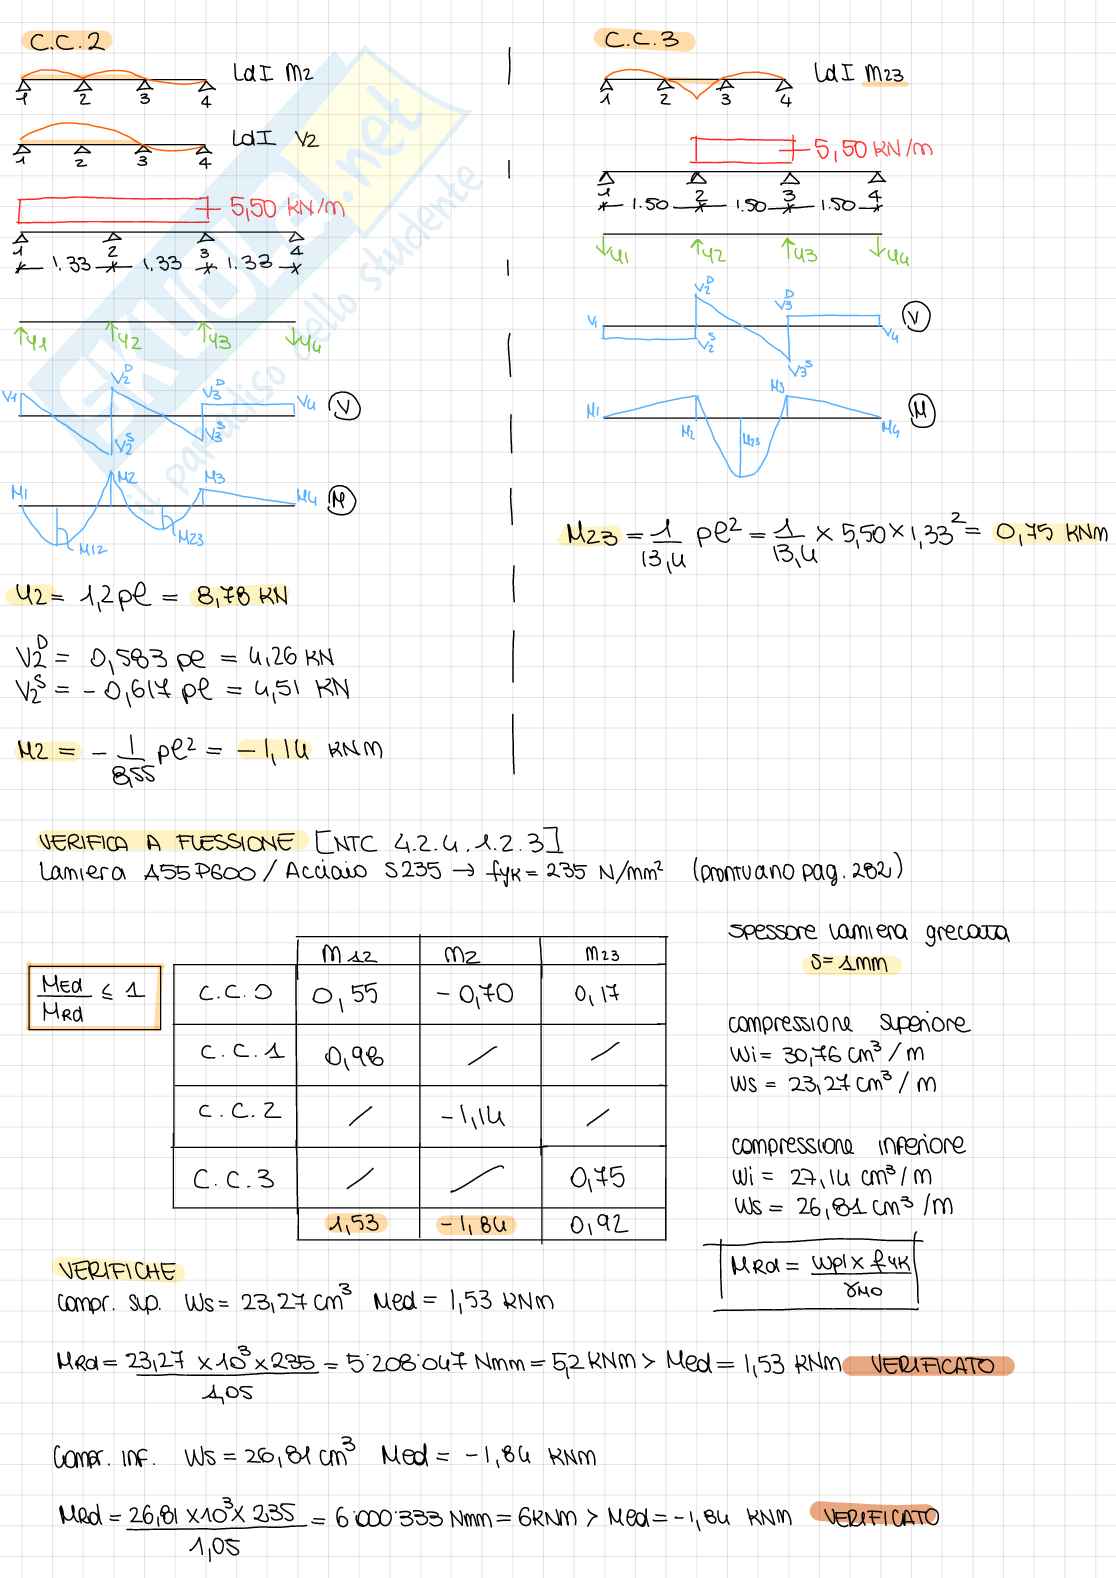 C.C.2
LdI M2
1 2 3 4
LdI V2
1 2 3 4
5,50 KN/m
1 2 3 4
1.33 1.33 1.33
V1 V2 V3 V4
V1 V2ᴰ V2ˢ V3ᴰ V3ˢ V4 (V)
M1 M12 M2 M23 M3 M4 (M)
V2 = 1,2 pl = 8,78 KN
V2ᴰ = 0,583 pl = 4,26 KN
V2ˢ = - 0,617 pl = 4,51 KN
M2 = - 1/8,55 pl² = -1,14 KNm
C.C.3
LdI M23
1 2 3 4
5,50 KN/m
1 2 3 4
1.50 1.50 1.50
V1 V2 V3 V4
V1 V2ᴰ V2ˢ V3ᴰ V3ˢ V4 (V)
M1 M2 M23 M3 M4 (M)
M23 = 1/13,4 pl² = 1/13,4 × 5,50 × 1,33² = 0,75 KNm
VERIFICA A FLESSIONE [NTC 4.2.4.1.2.3]
Lamiera A55P600 / Acciaio S235 → fyk = 235 N/mm² (prontuario pag. 282)
MEd/MRd ≤ 1
M12 M2 M23
C.C.0 0,55 -0,70 0,17
C.C.1 0,98 / /
C.C.2 / -1,14 /
C.C.3 / / 0,75
1,53 -1,84 0,92
spessore lamiera grecata
s = 1mm
compressione superiore
Wi = 30,76 cm³/m
Ws = 23,27 cm³/m
compressione inferiore
Wi = 27,14 cm³/m
Ws = 26,81 cm³/m
MRd = Wpl × fyk / γM0
VERIFICHE
Compr. sup. Ws = 23,27 cm³ Med = 1,53 KNm
MRd = 23,27 × 10³ × 235 / 1,05 = 5'208'047 Nmm = 5,2 KNm > Med = 1,53 KNm VERIFICATO
Compr. inf. Ws = 26,81 cm³ Med = -1,84 KNm
MRd = 26,81 × 10³ × 235 / 1,05 = 6'000'333 Nmm = 6KNm > Med = -1,84 KNm VERIFICATO
SKUOLA.net
il paradiso dello studente